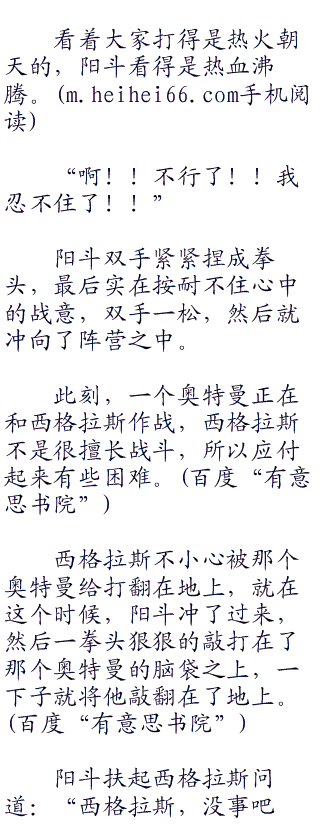 看着大家打得是热火朝
天的，阳斗看得是热血沸
腾。(m.heihei66.com手机阅
读)
“啊！！不行了！！我
忍不住了！！”
阳斗双手紧紧捏成拳
头，最后实在按耐不住心中
的战意，双手一松，然后就
冲向了阵营之中。
此刻，一个奥特曼正在
和西格拉斯作战，西格拉斯
不是很擅长战斗，所以应付
起来有些困难。(百度“有意
思书院”)
西格拉斯不小心被那个
奥特曼给打翻在地上，就在
这个时候，阳斗冲了过来，
然后一拳头狠狠的敲打在了
那个奥特曼的脑袋之上，一
下子就将他敲翻在了地上。
(百度“有意思书院”)
阳斗扶起西格拉斯问
道：“西格拉斯，没事吧